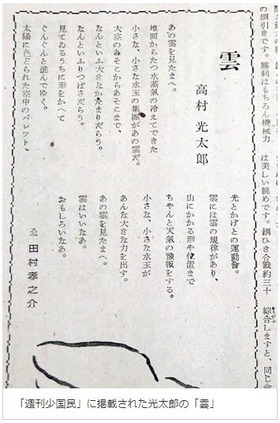 の綱引きです。勝利はもちろん機械力
は美しい眺めです。綱ひき合戦約三十
綜合しますと、同じ
雲
高村光太郎
あの雲を見たまへ。
地面からたつ水蒸氣の冷えてできた
小さな、小さな水玉の集團があの雲だ。
大空のあそこからあそこまで、
なんといふ大きなかたまりだらう。
なんといふりつぱさだらう。
見てゐるうちに形をかへて
ぐんぐんと進んでゆく。
太陽に色どられた空中のパレット、
光とかげとの運動會。
雲には雲の規律があり、
山にかかる形や位置まで
ちやんと天氣の豫報をする。
小さな、小さな水玉が
あんな大きな力を出す。
あの雲を見たまへ。
雲はいいなあ。
おもしろいなあ。
ゑ 田村孝之介
「週刊少国民」に掲載された光太郎の「雲」